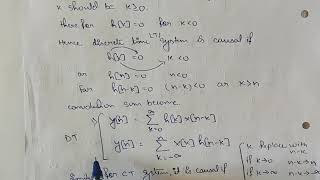 k should be k≥0.
there for h[k]=0 for k<0
Hence discrete time LTI system is causal if
h[k]=0 k<0
or h[n]=0 n<0
For h[n-k]=0 (n-k)<0 or k>n
convolution sum become.
y[n]=∑ h[k] x[n-k] k=0 ∞
DT
y[n]=∑ x[k] h[n-k] k=-∞ n
k Replace with
n-k
if k→0 n-k→n
if k→∞ n-k→-∞
for CT system, it is causal if